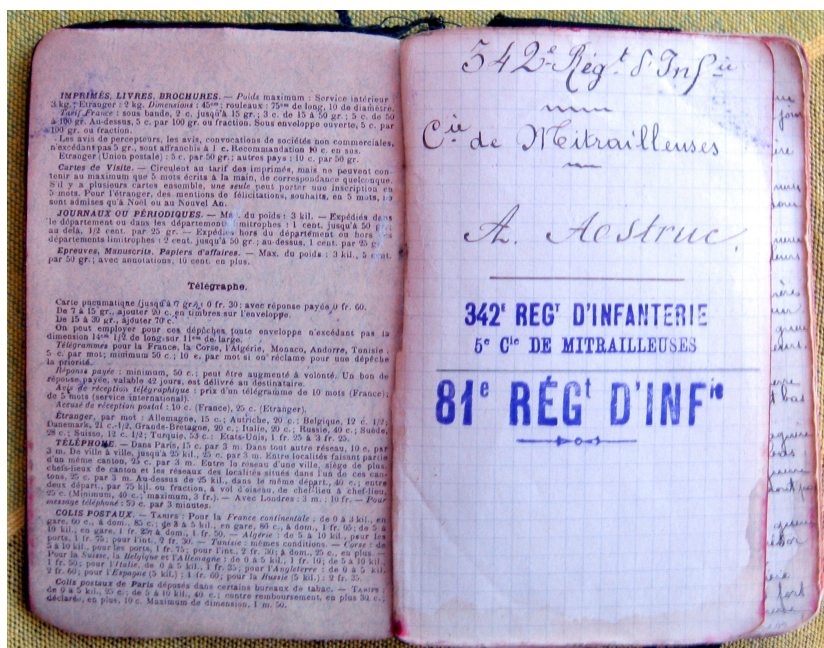 IMPRIMÉS, LIVRES, BROCHURES. — Poids maximum : Service intérieur
3 kg. Etranger : 2 kg. Dimensions : 45cm; rouleaux : 75cm de long, 10 de diamètre.
Tarif France : sous bande, 2 c. jusqu'à 15 gr.; 3 c. de 15 à 50 gr.; 5 c. de 50
à 100 gr. Au-dessus, 5 c. par 100 gr. ou fraction. Sous enveloppe ouverte, 5 c. par
100 gr. ou fraction.
Les avis de percepteurs, les avis, convocations de sociétés non commerciales,
n'excédant pas 5 gr., sont affranchis à 1 c. Recommandation 10 c. en sus.
Etranger (Union postale) : 5 c. par 50 gr.; autres pays : 10 c. par 50 gr.
Cartes de Visite. — Circulent au tarif des imprimés, mais ne peuvent con-
tenir au maximum que 5 mots écrits à la main, de correspondance quelconque.
S'il y a plusieurs cartes ensemble, une seule peut porter une inscription en
5 mots. Pour l'étranger, des mentions de félicitations, souhaits, en 5 mots,
sont admises qu'à Noël ou au Nouvel An.
JOURNAUX OU PÉRIODIQUES. — Max. du poids : 3 kil. — Expédiés dans
le département ou dans les départements limitrophes : 1 cent. jusqu'à 50 gr.;
au delà, 1/2 cent. par 25 gr. — Expédiés hors du département ou hors les
départements limitrophes : 2 cent. jusqu'à 50 gr.; au-dessus, 1 cent. par 25 gr.
Epreuves, Manuscrits, Papiers d'affaires. — Max. du poids : 3 kil., 5 cent.
par 50 gr.; avec annotations, 10 cent. en plus.
Télégraphe.
Carte pneumatique (jusqu'à 7 gr.) : 0 fr. 30; avec réponse payée 0 fr. 60.
De 7 à 15 gr., ajouter 20 c. en timbres sur l'enveloppe.
De 15 à 30 gr., ajouter 70 c.
On peut employer pour ces dépêches toute enveloppe n'excédant pas la
dimension 14cm 1/2 de long, sur 11cm de large.
Télégrammes pour la France, la Corse, l'Algérie, Monaco, Andorre, Tunisie :
5 c. par mot; minimum 50 c.; 10 c. par mot si on réclame pour une dépêche
la priorité.
Réponse payée : minimum, 50 c.; peut être augmenté à volonté. Un bon de
réponse payée, valable 42 jours, est délivré au destinataire.
Avis de réception télégraphique : prix d'un télégramme de 10 mots (France);
de 5 mots (service international).
Accusé de réception postal : 10 c. (France), 25 c. (Etranger).
Étranger, par mot : Allemagne, 15 c.; Autriche, 20 c.; Belgique, 12 c. 1/2;
Danemark, 21 c. 1/2; Grande-Bretagne, 20 c.; Italie, 20 c.; Russie, 40 c.; Suède,
28 c.; Suisse, 12 c. 1/2; Turquie, 53 c.; Etats-Unis, 1 fr. 25 à 3 fr. 25.
TÉLÉPHONE. — Dans Paris, 15 c. par 3 m. Dans tout autre réseau, 10 c. par
3 m. De ville à ville, jusqu'à 25 kil., 25 c. par 3 m. Entre localités faisant partie
d'un même canton, 25 c. par 3 m. Entre le réseau d'une ville, siège de plus.
chefs-lieux de canton et les réseaux des localités situés dans l'un de ces can-
tons, 25 c. par 3 m. Au-dessus de 25 kil., dans le même départ., 40 c.; entre
deux départ., par 75 kil. ou fraction, à vol d'oiseau, de chef-lieu à chef-lieu,
25 c. (Minimum, 40 c.; maximum, 3 fr.). — Avec Londres : 3 m. : 10 fr. — Pour
message téléphoné : 50 c. par 3 minutes.
COLIS POSTAUX. — TARIFS : Pour la France continentale : de 0 à 3 kil., en
gare, 60 c., à dom., 85 c.; de 3 à 5 kil., en gare, 80 c., à dom., 1 fr. 05; de 5 à
10 kil., en gare, 1 fr. 25, à dom., 1 fr. 50. — Algérie : de 5 à 10 kil., pour les
ports, 1 fr. 75; pour l'int., 2 fr. 30. — Tunisie : mêmes conditions. — Corse : de
5 à 10 kil., pour les ports, 1 fr. 75; pour l'int., 2 fr. 30; à dom., 25 c. en plus. —
Pour la Suisse, la Belgique et l'Allemagne : de 0 à 5 kil., 1 fr. 10; de 5 à 10 kil.,
1 fr. 50; pour l'Italie, de 0 à 5 kil., 1 fr. 35; pour l'Angleterre : de 0 à 5 kil.,
2 fr. 60; pour l'Espagne (5 kil.) : 1 fr. 60; pour la Russie (5 kil.) : 2 fr. 35.
Colis postaux de Paris déposés dans certains bureaux de tabac. — TARIFS :
de 0 à 5 kil., 25 c.; de 5 à 10 kil., 40 c.; contre remboursement, en plus 30 c.;
déclarés, en plus, 10 c. Maximum de dimension, 1 m. 50.
342e Régt d'Infie
Cie de Mitrailleuses
A. Aostruc.
342e REGT D'INFANTERIE
5e Cie DE MITRAILLEUSES
81e RÉGt D'INFie